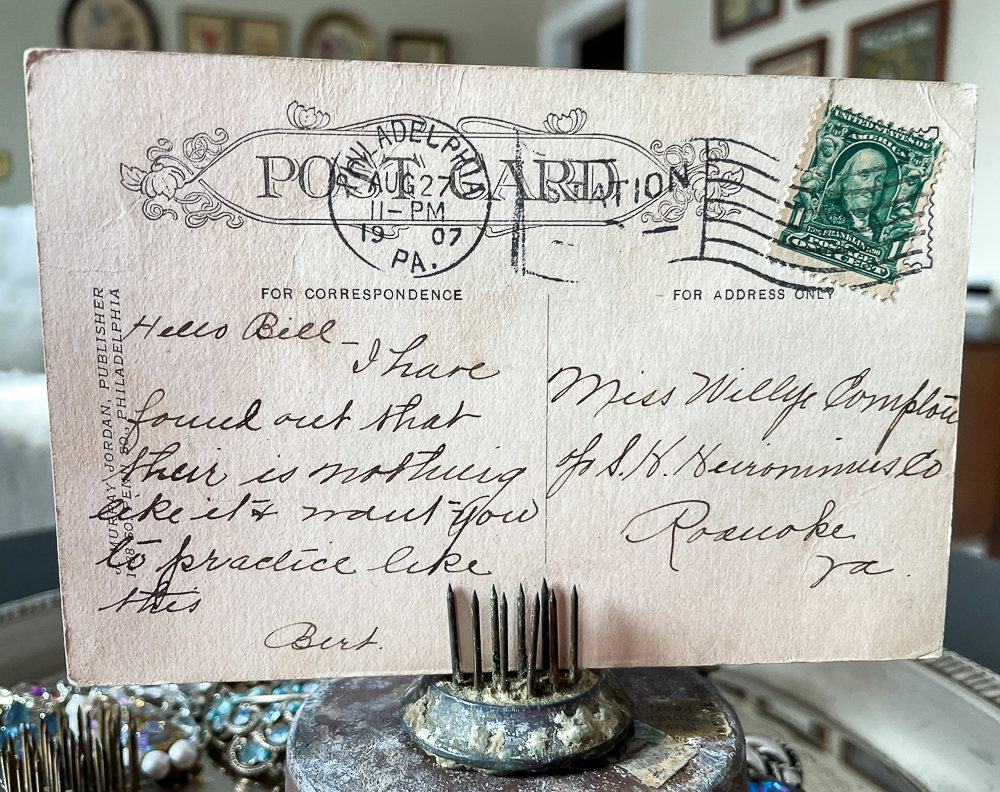 POST CARD
PHILADELPHIA
AUG 27
11-PM
19 07
PA.
STATION
UNITED STATES OF
AMERICA
FRANKLIN
POSTAGE
1 ONE CENT 1
FOR CORRESPONDENCE
FOR ADDRESS ONLY
MURRAY JORDAN, PUBLISHER
PHILADELPHIA
Hello Bill-
I have
found out that
their is nothing
like it & want you
to practice like
this
Bert.
Miss Willye Compton
c/o S. H. Heironimus Co
Roanoke
Va.